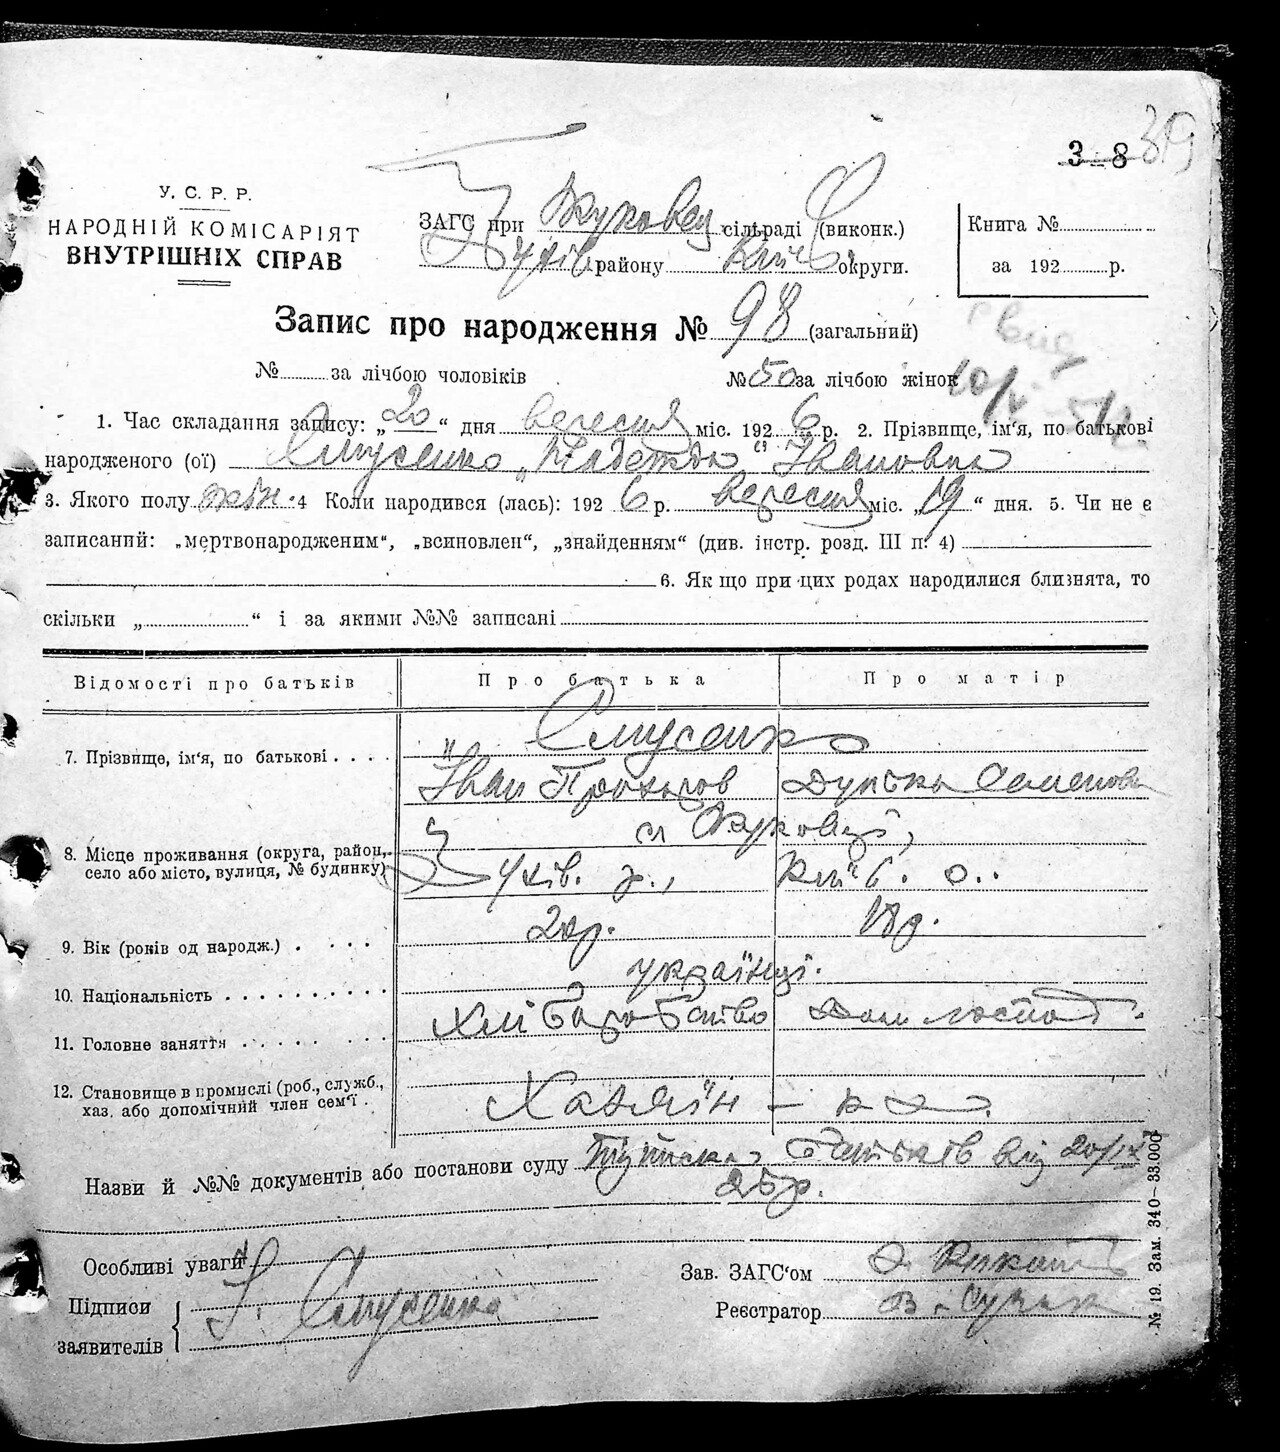 3-8 39
У. С. Р. Р.
НАРОДНІЙ КОМІСАРІЯТ
ВНУТРІШНІХ СПРАВ
ЗАГС при Жуковец сільраді (виконк.)
району Київ округи.
Книга №
за 192 р.
Запис про народження № 98 (загальний)
№ за лічбою чоловіків
№ 50 за лічбою жінок
1. Час складання запису: „20“ дня вересня міс. 1926 р. 2. Прізвище, ім‘я, по батькові
народженого (ої) Смусенко „Надежда“ Івановна
3. Якого полу жін. 4 Коли народився (лась): 1926 р. вересня міс. „19“ дня. 5. Чи не є
записаний: „мертвонародженим“, „всиновлен“, „знайденням“ (див. інстр. розд. III п. 4)
6. Як що при цих родах народилися близнята, то
скільки „ “ і за якими №№ записані
Відомості про батьків
Про батька
Про матір
7. Прізвище, ім‘я, по батькові
Смусенко
Іван Прохоров
Дунька Семенов
8. Місце проживання (округа, район,
село або місто, вулиця, № будинку)
с. Жуковці,
Київ. о.
9. Вік (років од народж.)
20 р.
18 р.
10. Національність
українці.
11. Головне заняття
Хліборобство
Дом. господ.
12. Становище в промислі (роб., служб.,
хаз. або допомічний член сем‘ї
Хазяїн –
Назви й №№ документів або постанови суду батьків від 20/IX
25 р.
Особливі уваги
Підписи
заявителів
І. Смусенко
Зав. ЗАГС‘ом
Реєстратор
№ 19. Зам. 340–33.000